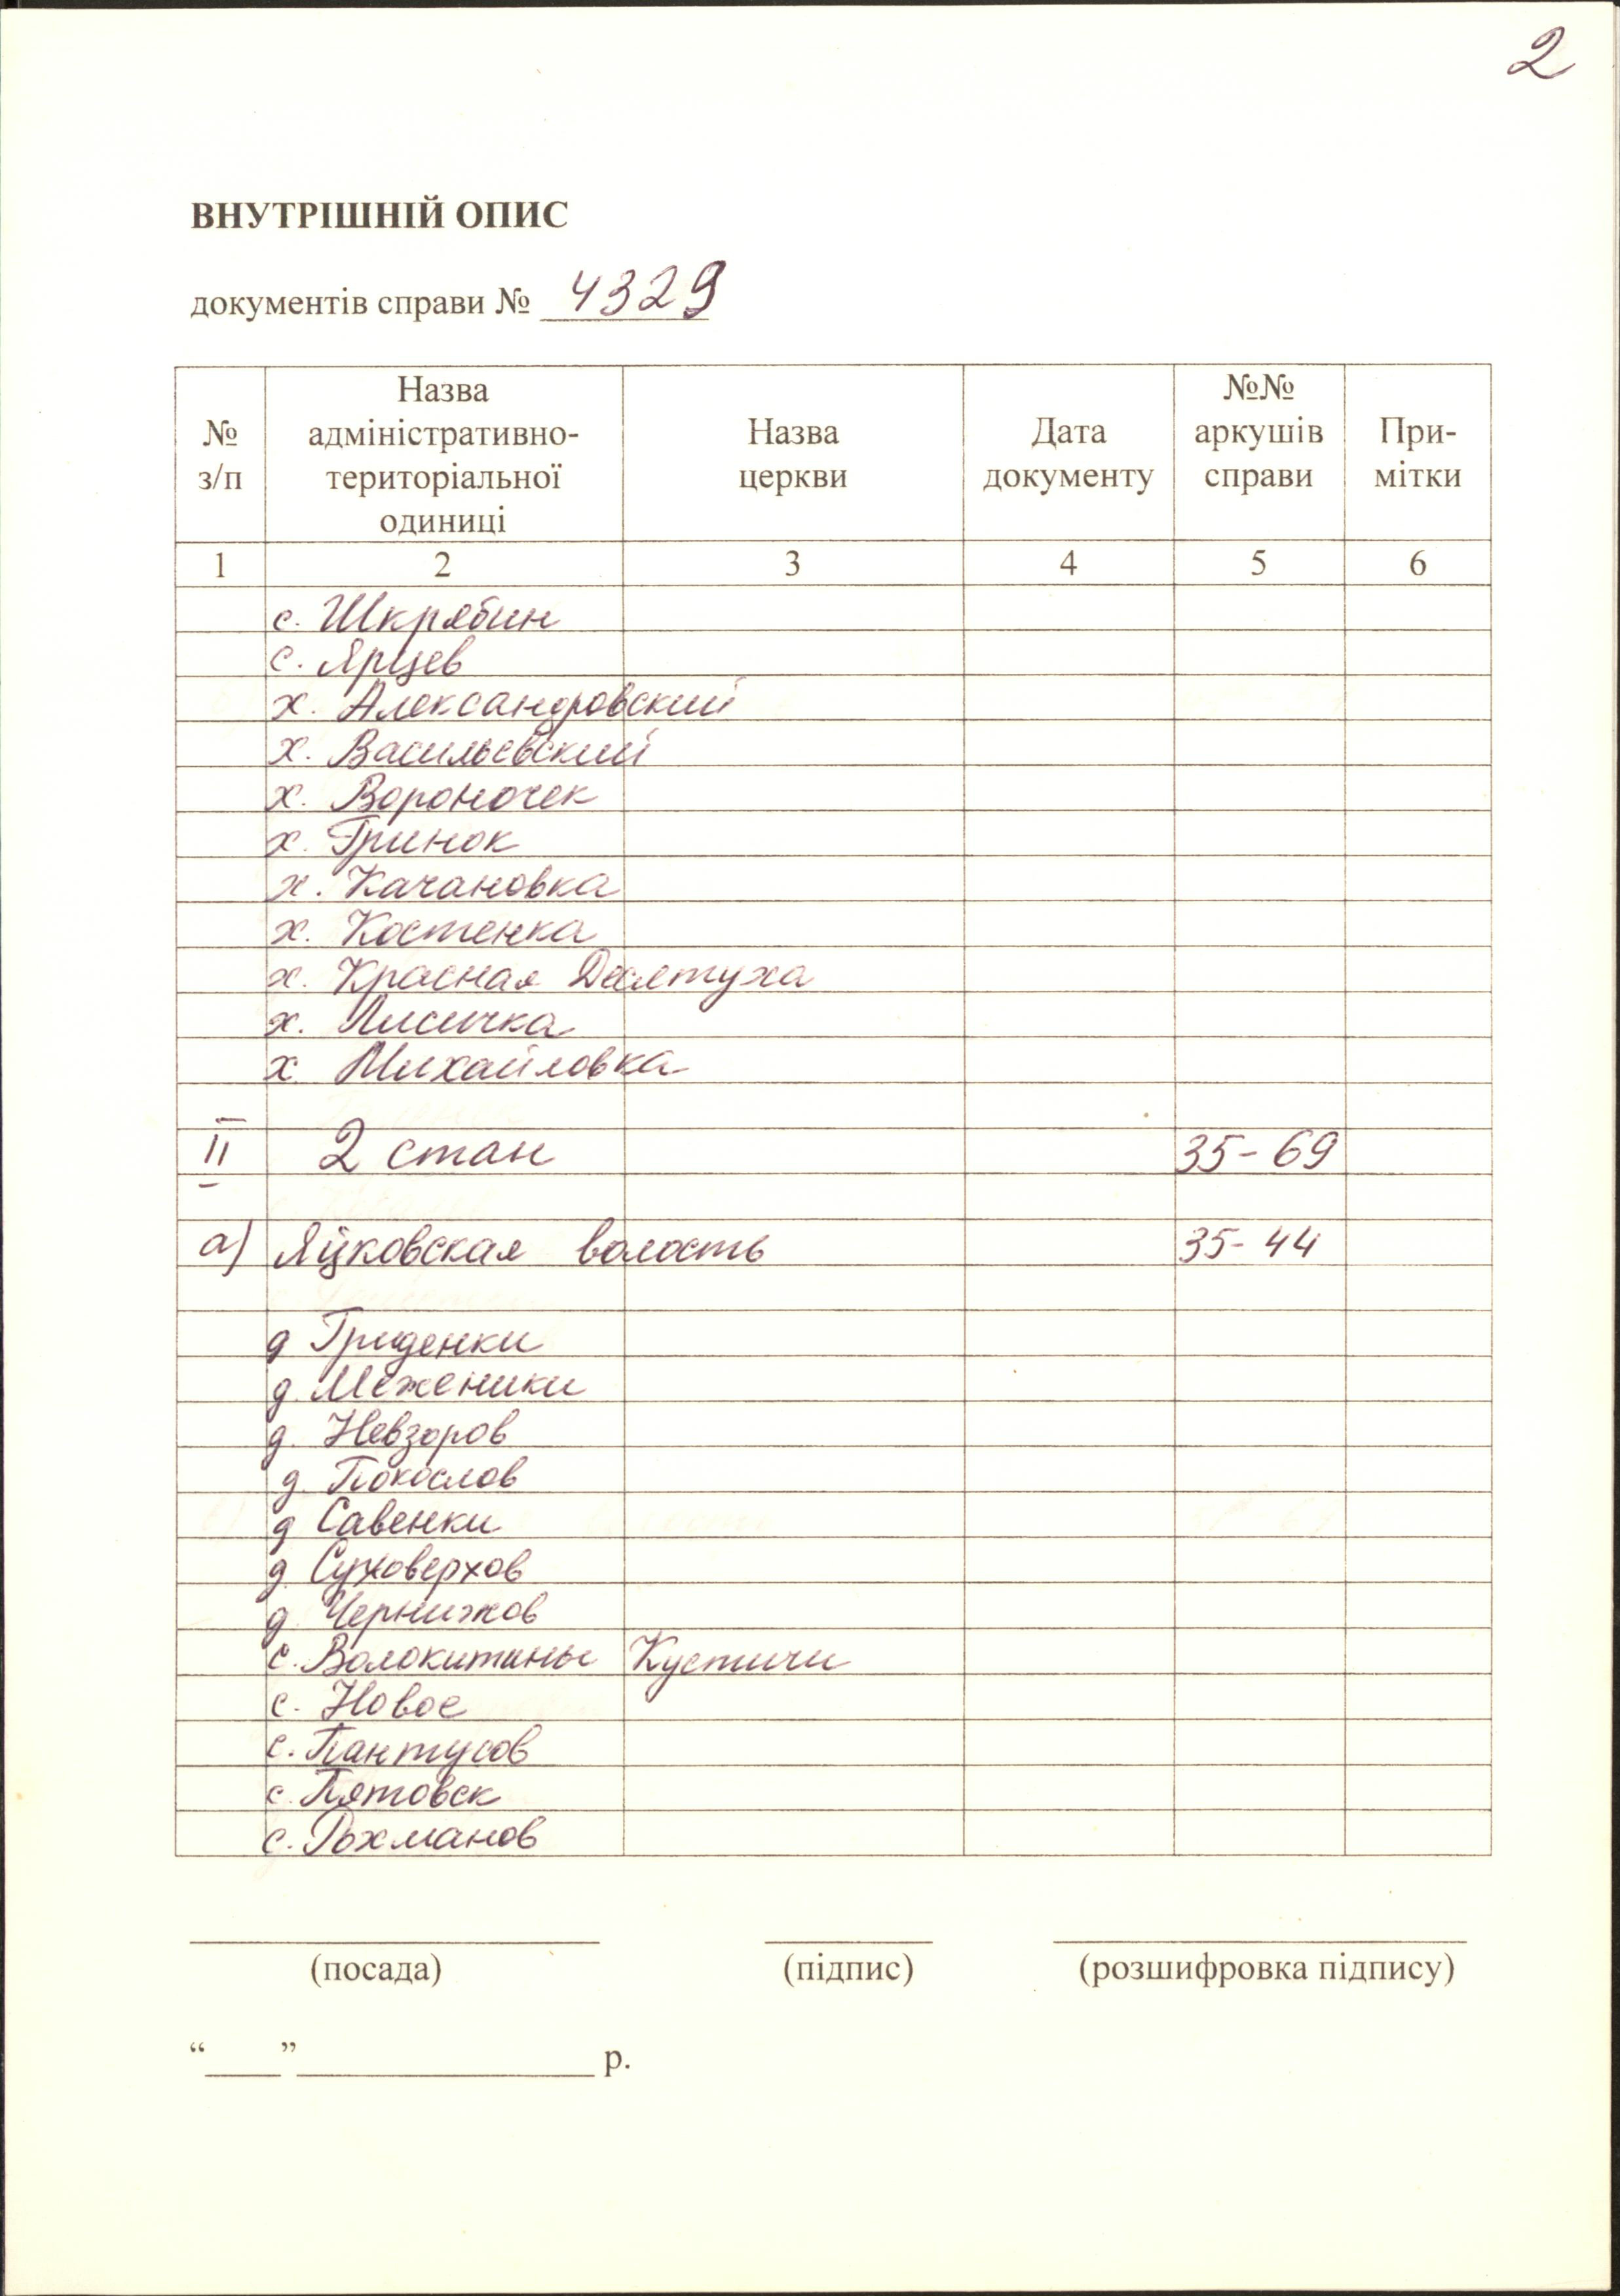 2
ВНУТРІШНІЙ ОПИС
документів справи № 4329
№ з/п
Назва адміністративно-територіальної одиниці
Назва церкви
Дата документу
№№ аркушів справи
Примітки
1 2 3 4 5 6
с. Шкрябин
с. Ярцев
х. Александровский
х. Васильевский
х. Вороночек
х. Гринок
х. Качановка
х. Костенка
х. Красная Десятуха
х. Лисичка
х Михайловка
II 2 стан 35-69
а) Яцковская волость 35-44
д Гриденки
д. Меженики
д. Невзоров
д. Покослов
д Савенки
д. Суховерхов
д. Чернижов
с. Волокитины Кустичи
с. Новое
с. Пантусов
с. Пятовск
с. Рохманов
(посада) (підпис) (розшифровка підпису)
“____”________________ р.